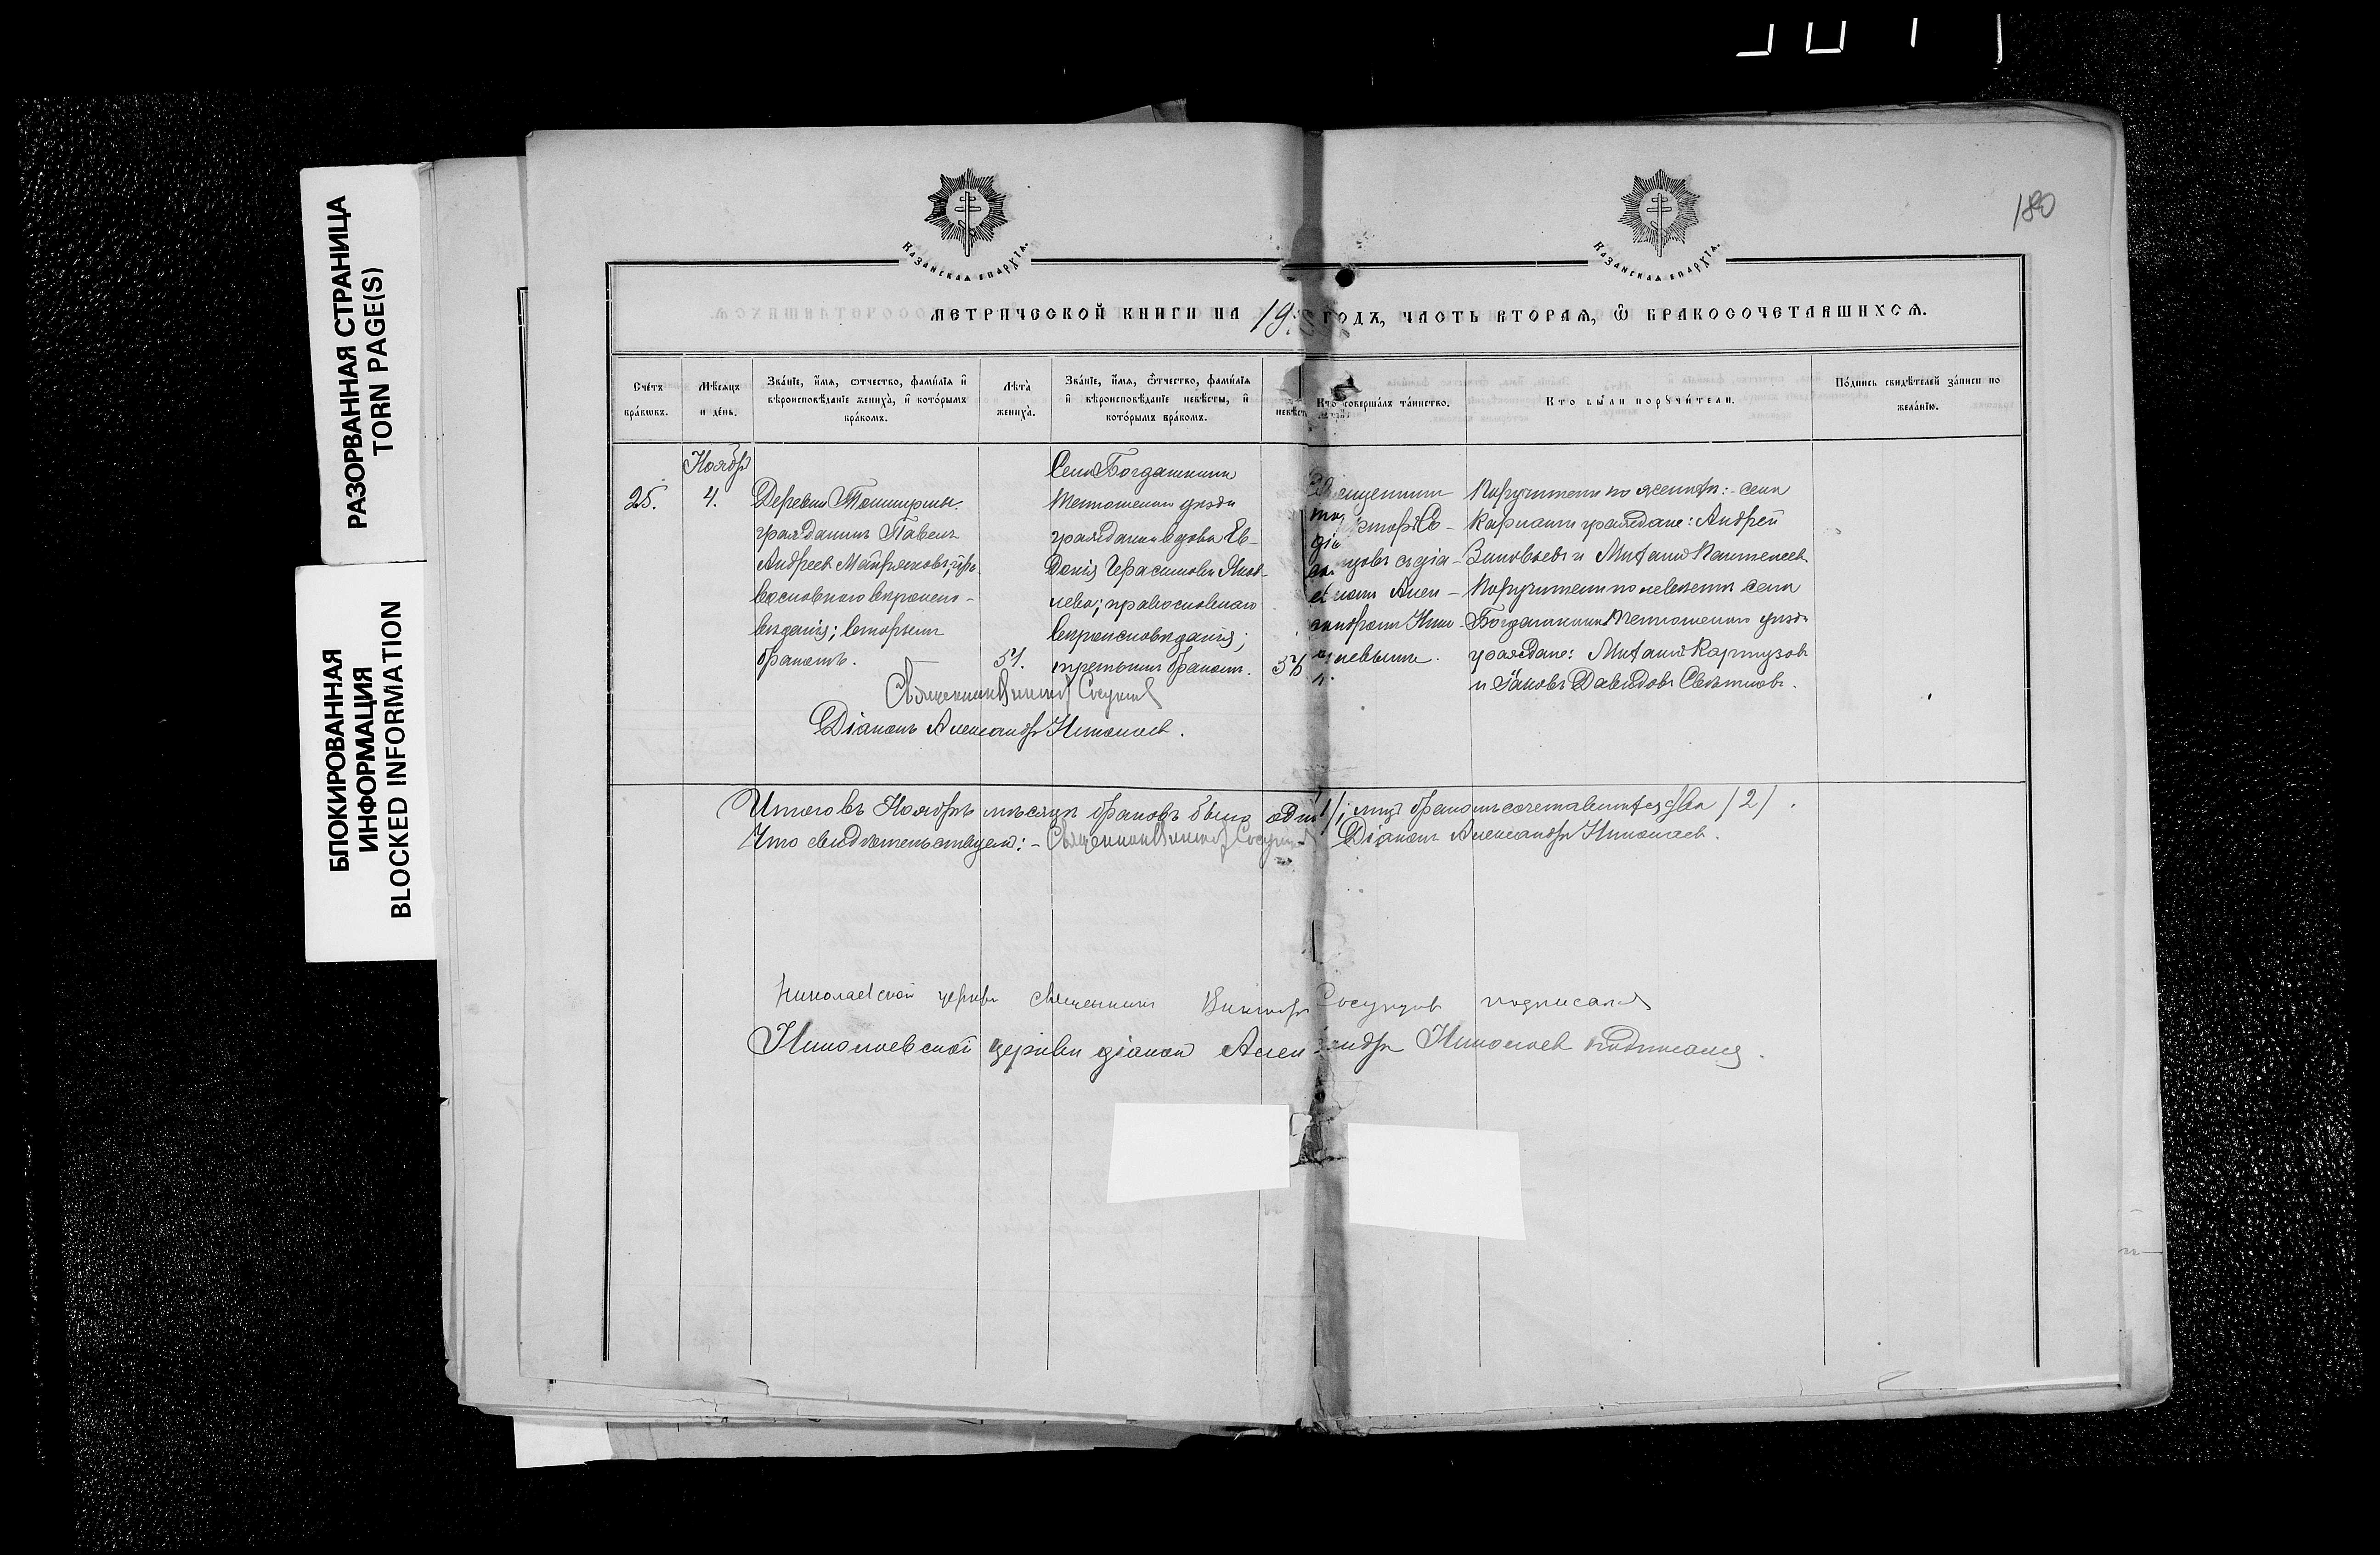 180
РАЗОРВАННАЯ СТРАНИЦА
TORN PAGE(S)
БЛОКИРОВАННАЯ
ИНФОРМАЦИЯ
BLOCKED INFORMATION
КАЗАНСКАѦ ЕПАРХІѦ.
КАЗАНСКАѦ ЕПАРХІѦ.
МЕТРИЧЕСКОЙ КНИГИ НА 19 ГОДЪ, ЧАСТЬ ВТОРАѦ, Ѽ БРАКОСОЧЕТАВШИХСѦ.
Сче́тъ бра́кѡвъ.
Мѣ́сѧцъ и де́нь.
Зва́нїе, и҆́мѧ, ѻ҆́тчество, фами́лїѧ и҆ вѣроисповѣ́данїе жениха̀, и҆ кото́рымъ бра́комъ.
Лѣ́та жениха̀.
Зва́нїе, и҆́мѧ, ѻ҆́тчество, фами́лїѧ и҆ вѣроисповѣ́данїе невѣ́сты, и҆ кото́рымъ бра́комъ.
невѣ́ст
Кто̀ соверша́лъ та́инство.
Кто̀ бы́ли порꙋчи́тели.
По́дпись свидѣ́телей за́писи по жела́нїю.
Ноябр
25.
4.
Деревни
гражданинъ Павелъ
Андреевъ пра-
вославнаго вѣроиспо-
вѣданія; вторымъ
бракомъ.
51.
Села Богдашкина
Тетюшскаго уѣзда
гражданка вдова Ев-
докія Герасимова Яков-
лева; православнаго
вѣроисповѣданія;
третьимъ бракомъ.
священникъ
съ діа-
кономъ Алек-
сандромъ Нико-
лаевымъ.
Поручители по женихѣ: села
граждане: Андрей
Зиновьевъ и Михаилъ
Поручители по невѣстѣ села
Богдашкина Тетюшскаго уѣзда
граждане: Михаилъ Картузовъ
и Іаковъ Давыдовъ
Священникъ Викторъ
Діаконъ Александръ Николаевъ.
Итого въ Ноябрѣ мѣсяцѣ браковъ было одинъ /1/; лицъ бракомъ сочетавшихся два /2/.
Что свидѣтельствуемъ: - Священникъ Викторъ
Діаконъ Александръ Николаевъ.
Николаевской церкви священникъ Викторъ подписался
Николаевской церкви діаконъ Александръ Николаевъ подписался.